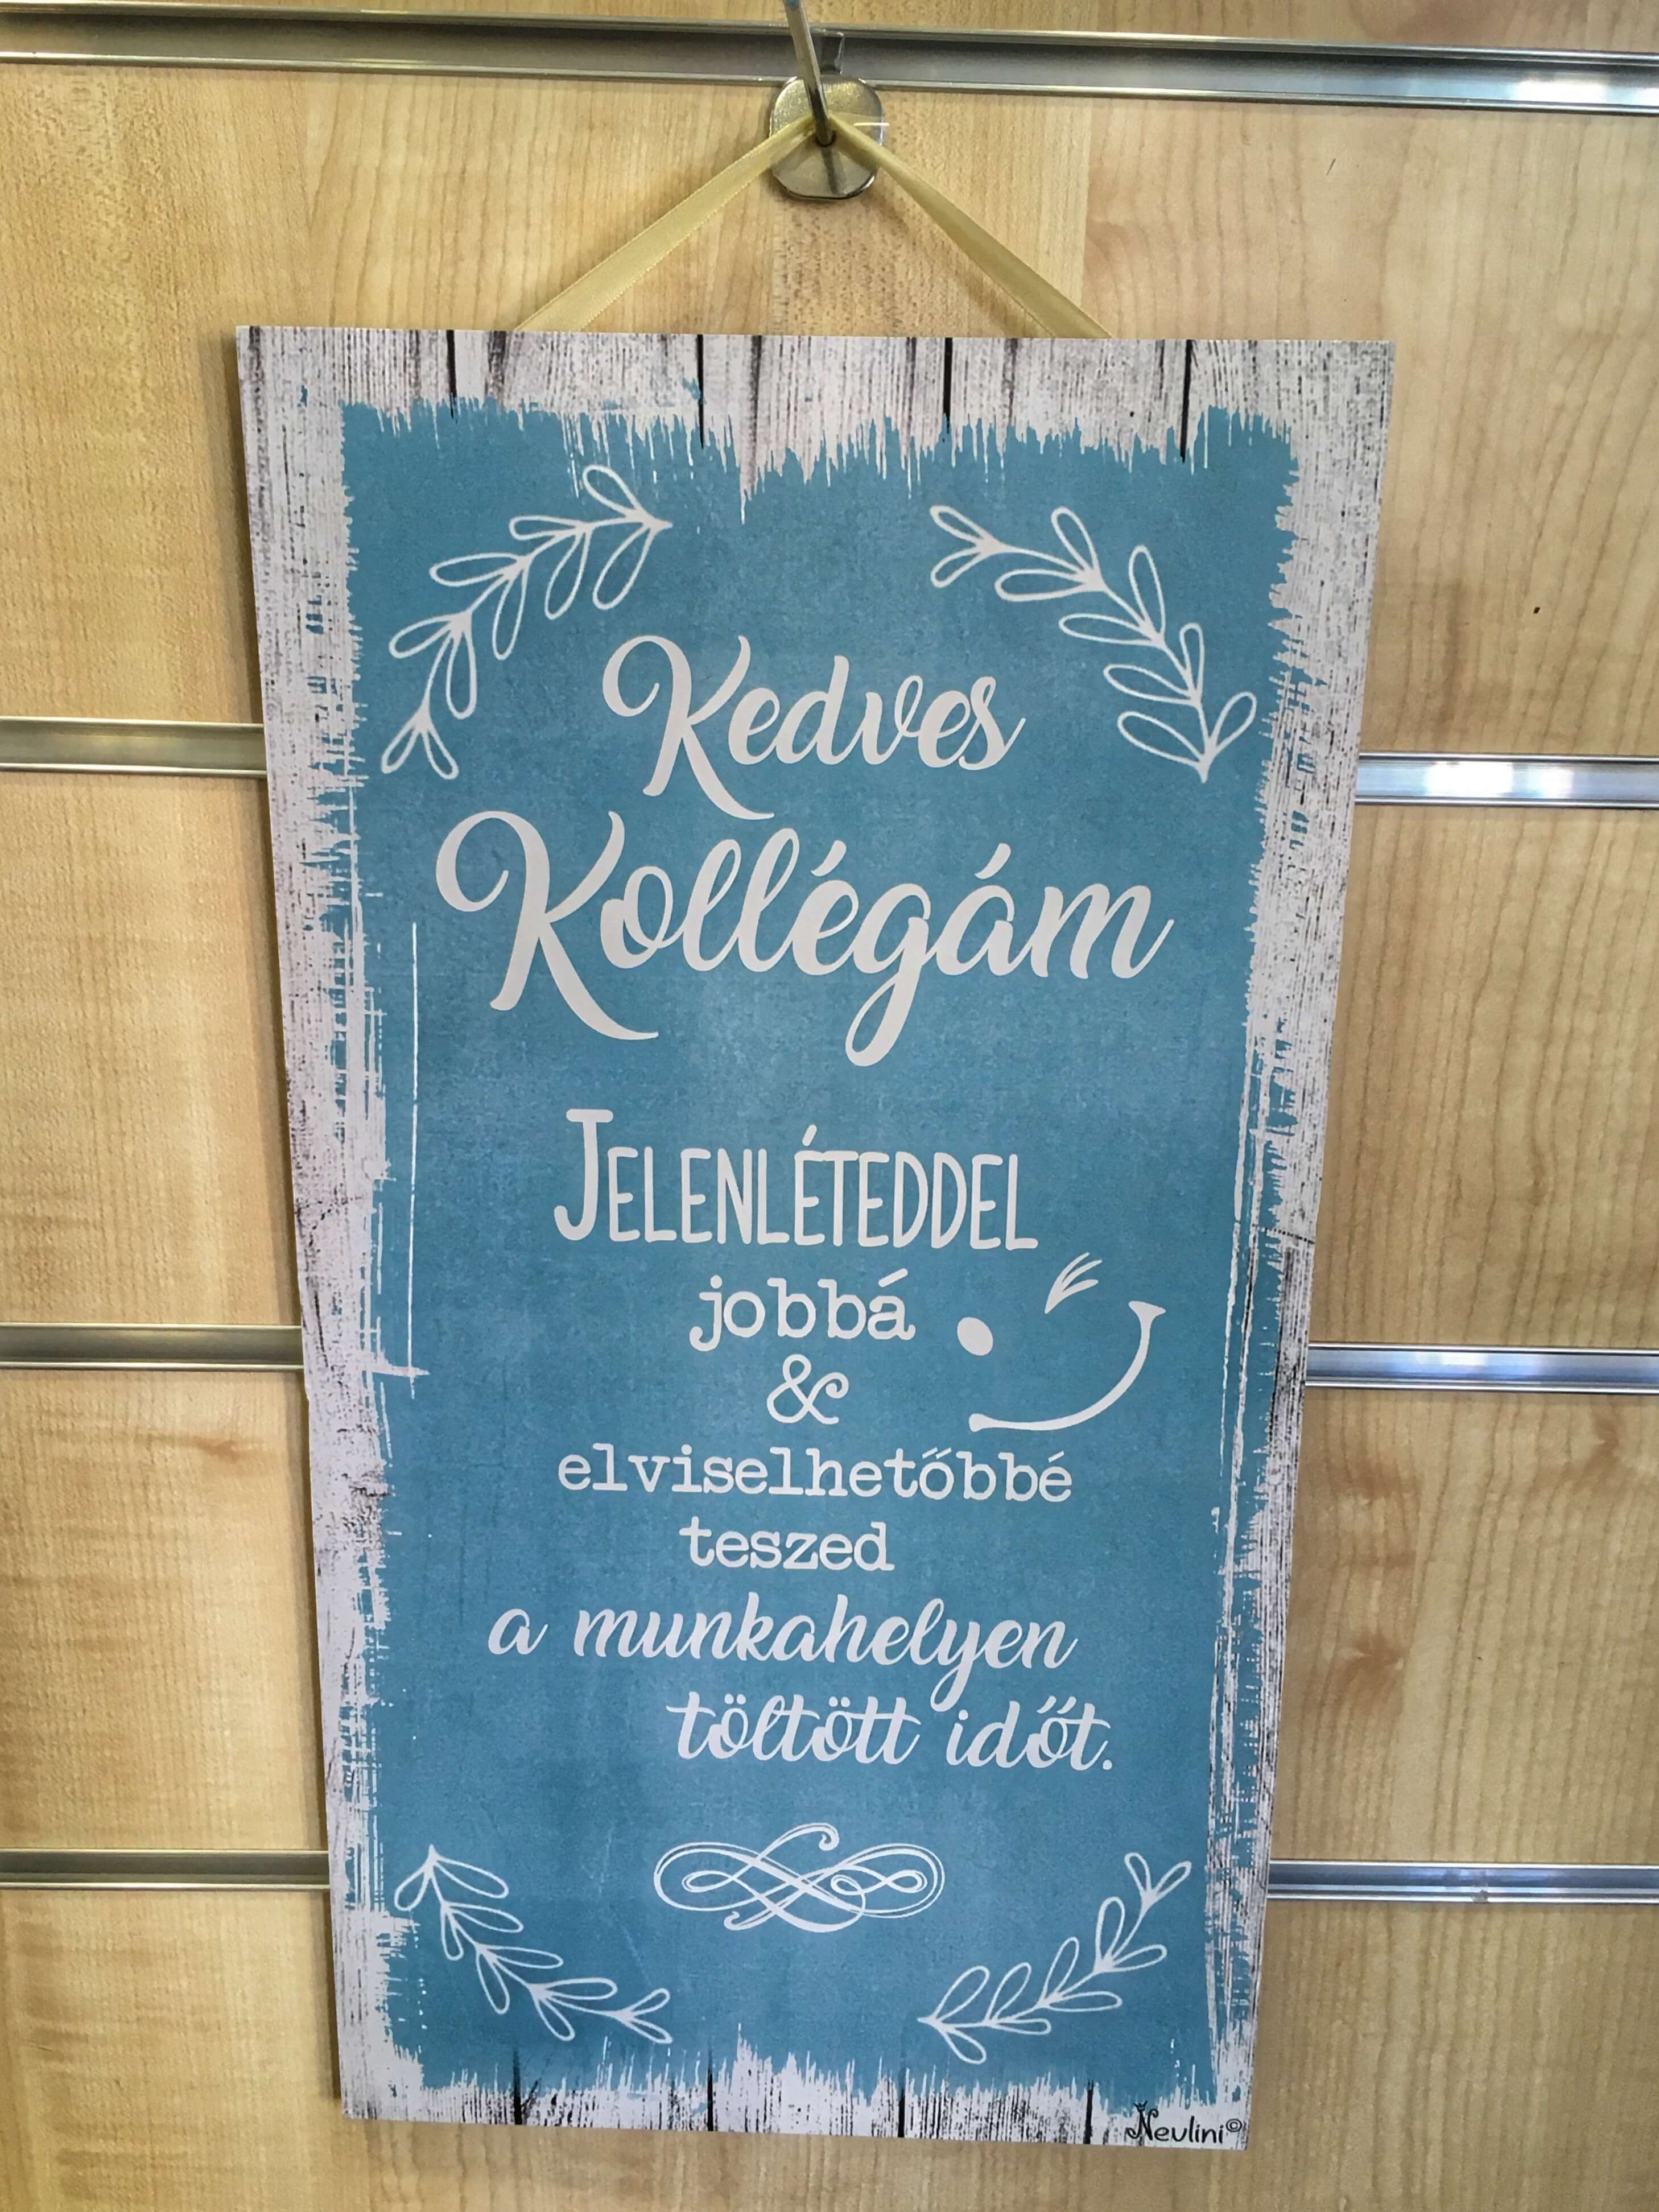 Kedves
Kollégám
JELENLÉTEDDEL
jobbá
&
elviselhetőbbé
teszed
a munkahelyen
töltött időt.
Nevlini©